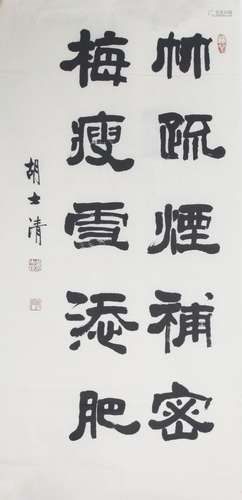 林疏煙補密
梅瘦雪添肥
胡士清